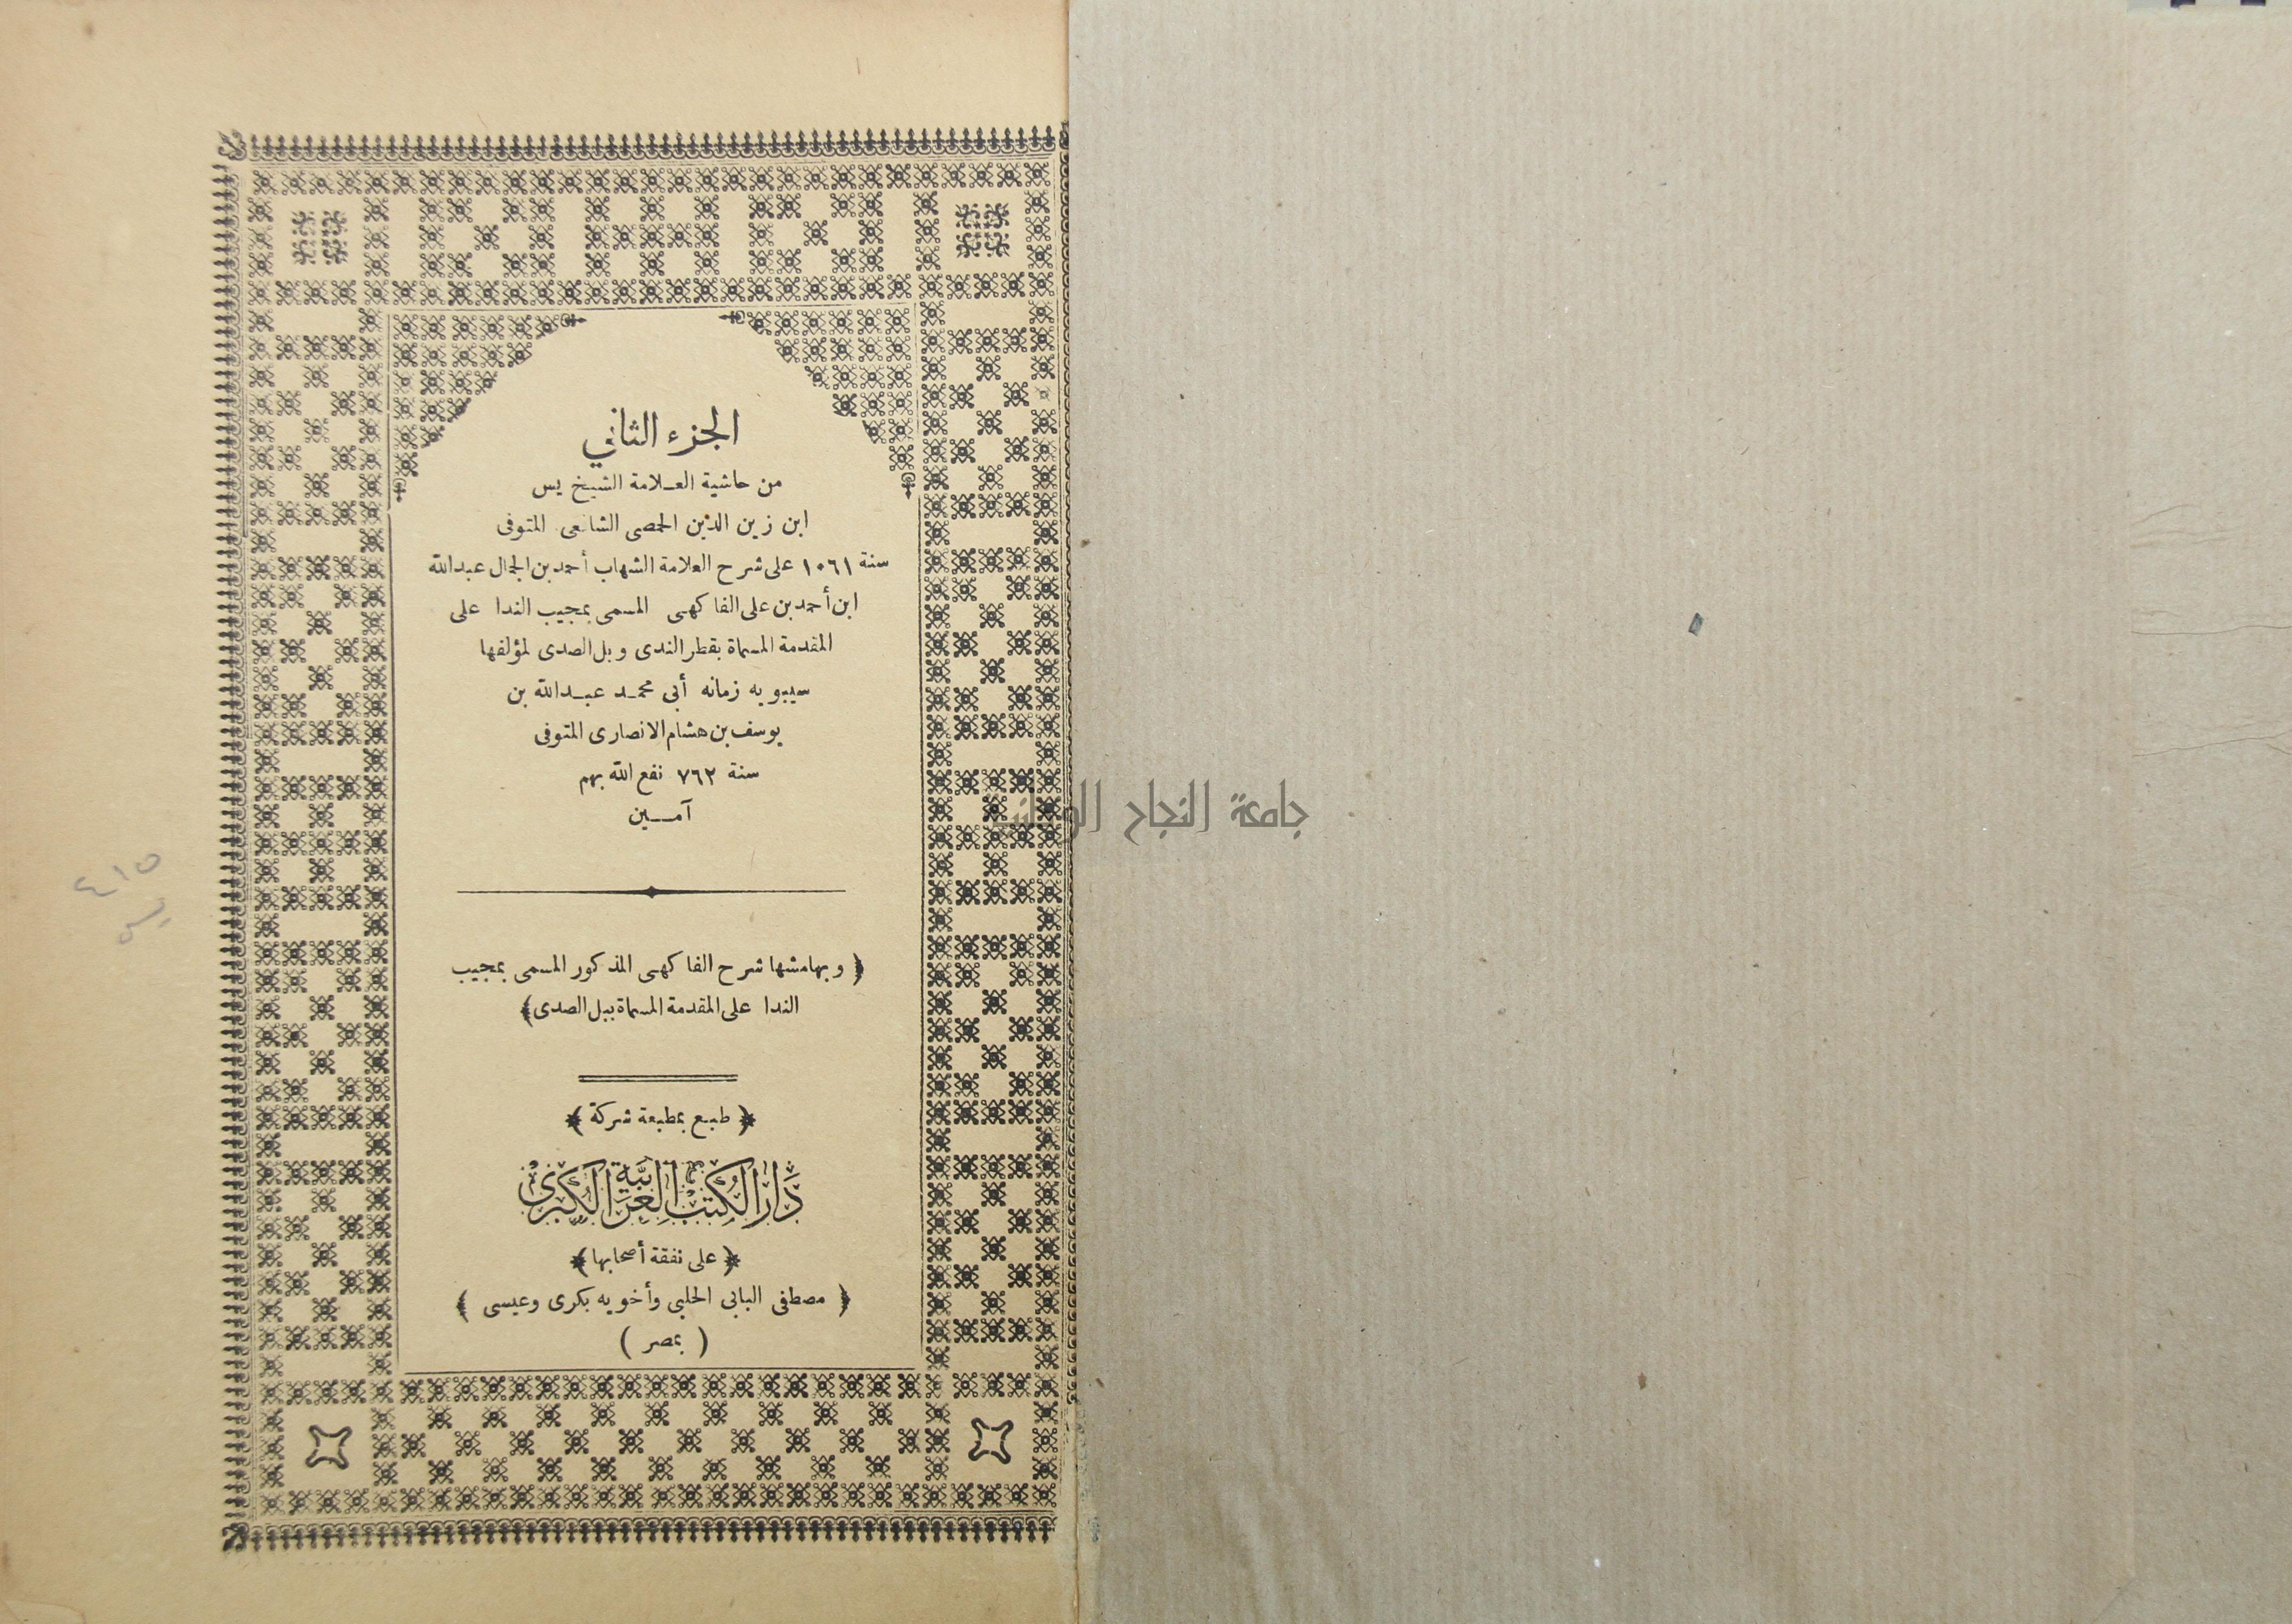 الجزء الثاني
من حاشية العلامة الشيخ يس
ابن زين الدين الحمصى الشافعى المتوفى
سنة ١٠٦١ على شرح العلامة الشهاب أحمد بن الجمال عبدالله
ابن أحمد بن على الفاكهى المسمى بمجيب الندا على
المقدمة المسماة بقطر الندى وبل الصدى لمؤلفها
سيبويه زمانه أبى محمد عبدالله بن
يوسف بن هشام الانصارى المتوفى
سنة ٧٦٢ نفع الله بهم
آمين
﴿ وبهامشها شرح الفاكهى المذكور المسمى بمجيب
الندا على المقدمة المسماة ببل الصدى ﴾
﴿ طبع بمطبعة شركة ﴾
دَارُ الكُتُبِ العَرَبِيَّةِ الكُبْرَى
﴿ على نفقة أصحابها ﴾
﴿ مصطفى البابى الحلبى وأخويه بكرى وعيسى ﴾
( بمصر )
جامعة النجاح الوطنية
٤١٥
يس